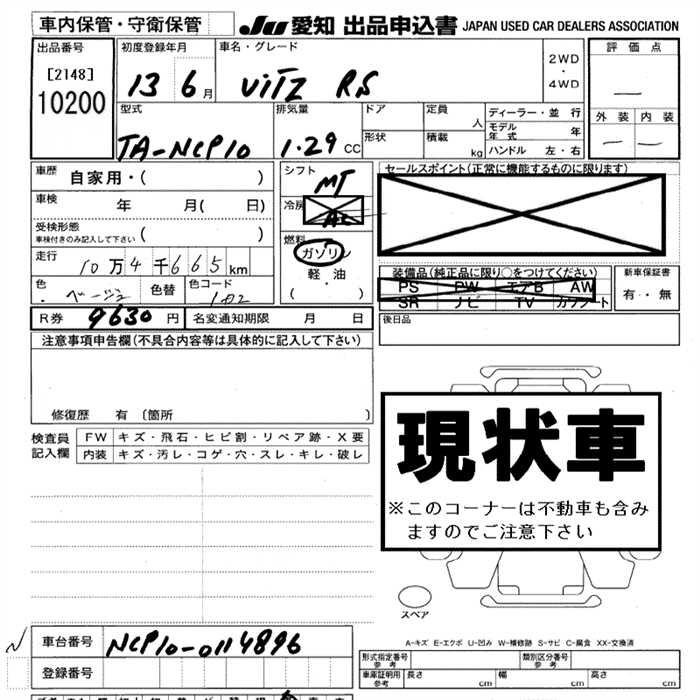 車内保管・守衛保管
JU 愛知 出品申込書 JAPAN USED CAR DEALERS ASSOCIATION
出品番号
[2148]
10200
初度登録年月
13 6月
車名・グレード
VITZ RS
2WD
・
4WD
評価点
—
外装 内装
— —
型式
TA-NCP10
排気量
1.29 CC
ドア
定員 人
形状
積載 kg
ディーラー・並行
モデル年式 年
ハンドル 左・右
車歴 自家用・( )
車検 年 月( 日)
受検形態
車検付きのみ記入して下さい ( )
走行 10万4千665km
色 ベージュ 色替 色コード
シフト MT
冷房 AC
燃料
ガソリン
軽・油
( ・ )
セールスポイント(正常に機能するものに限ります)
装備品(純正品に限り○をつけてください)
PS PW エアB AW
SR ナビ TV カワシート
新車保証書
有・無
R券 9630円 名変通知期限 月 日
後日品
注意事項申告欄(不具合内容等は具体的に記入して下さい)
修復歴 有 〔箇所 〕
検査員記入欄
FW キズ・飛石・ヒビ割・リペア跡・X要
内装 キズ・汚レ・コゲ・穴・スレ・キレ・破レ
現状車
※このコーナーは不動車も含み
ますのでご注意下さい
スペア
A-キズ E-エクボ U-凹み W-補修跡 S-サビ C-腐食 XX-交換済
車台番号 NCP10-0114896
登録番号
形式指定番号 参考
類別区分番号 参考
車庫証明用 参考 長さ cm 幅 cm 高さ cm